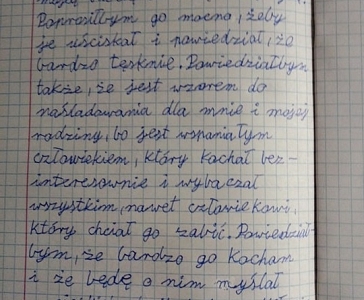 Poprosiłbym go mocno, żeby
je uściskał i powiedział, że
bardzo tęsknię. Powiedziałbym
także, że jest wzorem do
naśladowania dla mnie i mojej
rodziny, bo jest wspaniałym
człowiekiem, który kochał bez-
interesownie i wybaczał
wszystkim, nawet człowiekowi,
który chciał go zabić. Powiedział-
bym, że bardzo go kocham
i że będę o nim myślał